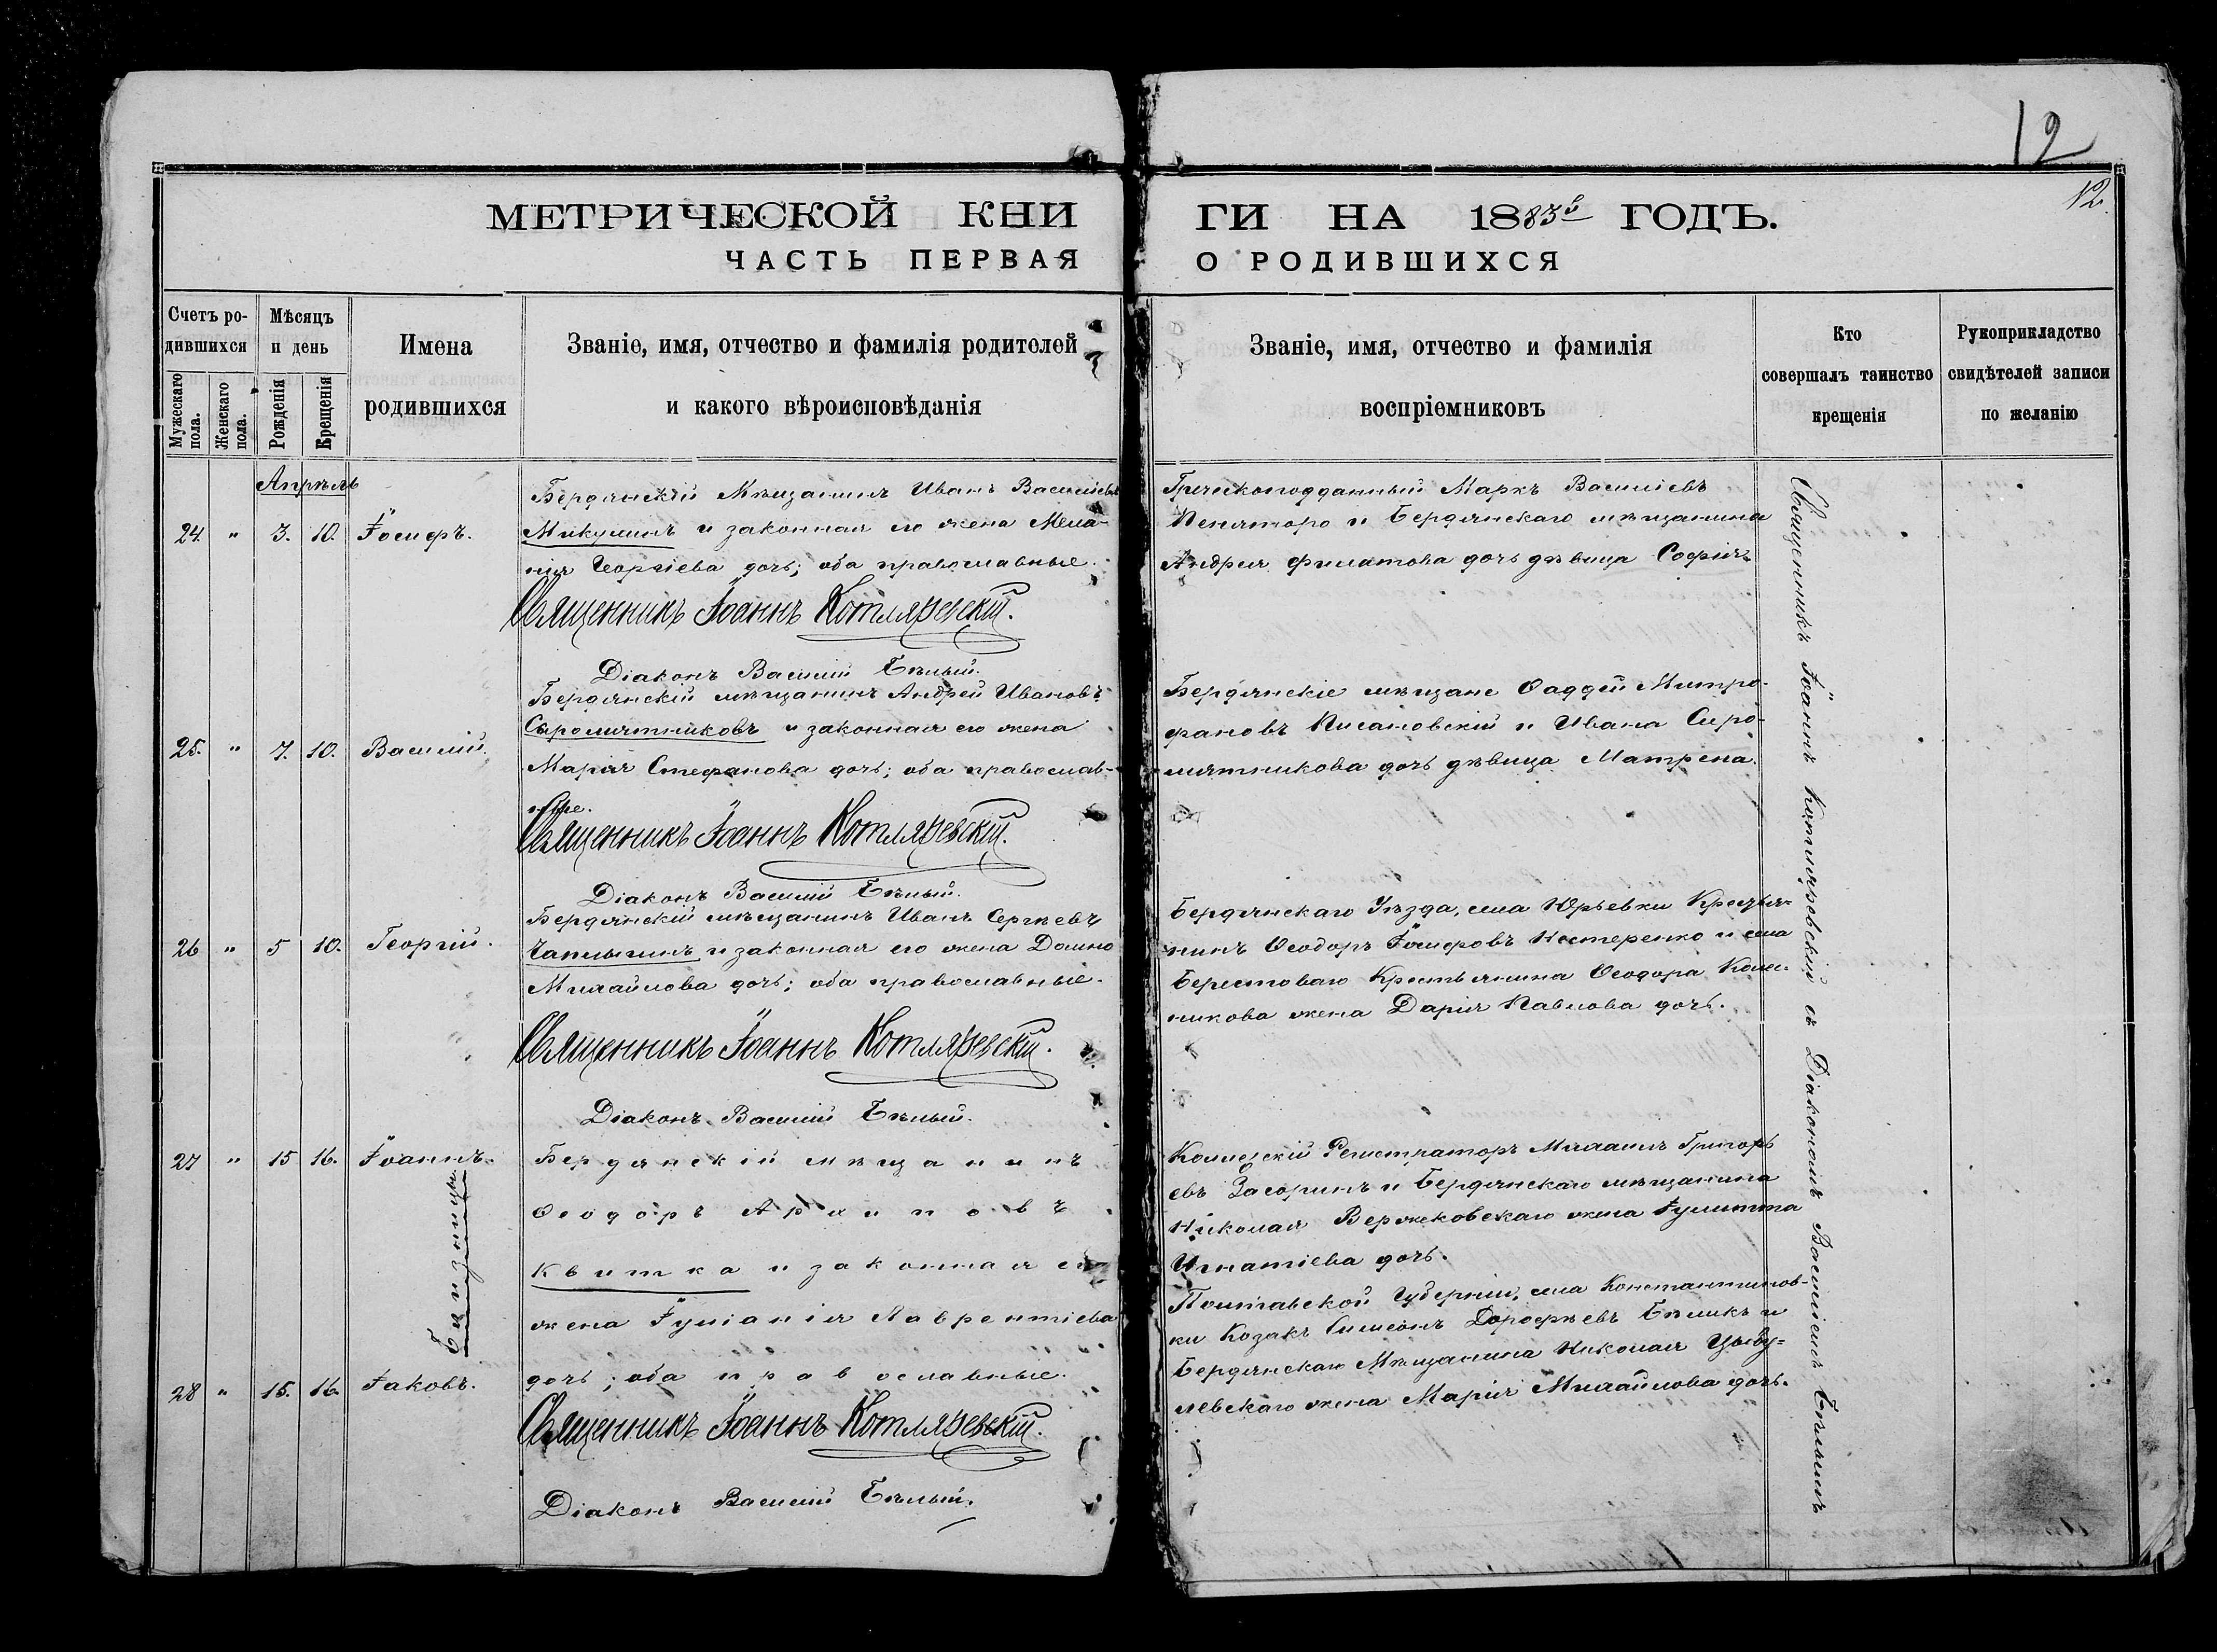 12
12.
МЕТРИЧЕСКОЙ КНИ ГИ НА 1883й ГОДЪ.
ЧАСТЬ ПЕРВАЯ О РОДИВШИХСЯ
Счетъ ро-
дившихся
Мужескаго
пола.
Женскаго
пола.
Мѣсяцъ
и день
Рожденія
Крещенія
Имена
родившихся
Званіе, имя, отчество и фамилія родителей
и какого вѣроисповѣданія
Званіе, имя, отчество и фамилія
воспріемниковъ
Кто
совершалъ таинство
крещенія
Рукоприкладство
свидѣтелей записи
по желанію
Апрѣль
24. " 3. 10. Іосифъ.
Бердянскій Мѣщанинъ Иванъ Васильевъ
Микулинъ и законная его жена Мела-
нія Георгіева дочь; оба православные.
Священникъ Іоаннъ Котляревскій.
Діаконъ Василій Бѣлый.
Греческоподданный Маркъ Василіевъ
и Бердянскаго мѣщанина
Андрея Филатова дочь дѣвица Софія.
25. " 7. 10. Василій.
Бердянскій мѣщанинъ Андрей Ивановъ
Сыромятниковъ и законная его жена
Марія Стефанова дочь; оба православ-
ные.
Священникъ Іоаннъ Котляревскій.
Діаконъ Василій Бѣлый.
Бердянскіе мѣщане Фаддей Митро-
фановъ Писановскій и Ивана Сыро-
мятникова дочь дѣвица Матрена.
26 " 5 10. Георгій.
Бердянскій мѣщанинъ Иванъ Сергѣевъ
Чаплыгинъ и законная его жена Домна
Михайлова дочь; оба православные.
Священникъ Іоаннъ Котляревскій.
Діаконъ Василій Бѣлый.
Бердянскаго Уѣзда, села Юрьевки Крестья-
нинъ Ѳеодоръ Іосифовъ Нестеренко и села
Берестоваго Крестьянина Ѳеодора Колес-
никова жена Дарія Павлова дочь.
27 " 15 16. Іоаннъ.
Близнецы
28 " 15. 16. Іаковъ.
Бердянскій мѣщанинъ
Ѳеодоръ Архиповъ
Квитка и законная его
жена Іуліанія Лаврентіева
дочь; оба православные.
Священникъ Іоаннъ Котляревскій.
Діаконъ Василій Бѣлый.
Коллежскій Регистраторъ Михаилъ Григорь
евъ Засоринъ и Бердянскаго мѣщанина
Николая Вержековскаго жена Іулитта
Игнатіева дочь.
Полтавской Губерніи, села Константинов-
ки Козакъ Симеонъ Дорофѣевъ Бѣликъ и
Бердянскаго Мѣщанина Николая Цыбу-
левскаго жена Марія Михайлова дочь.
Священникъ Іоаннъ Котляревскій съ Діакономъ Василіемъ Бѣлымъ